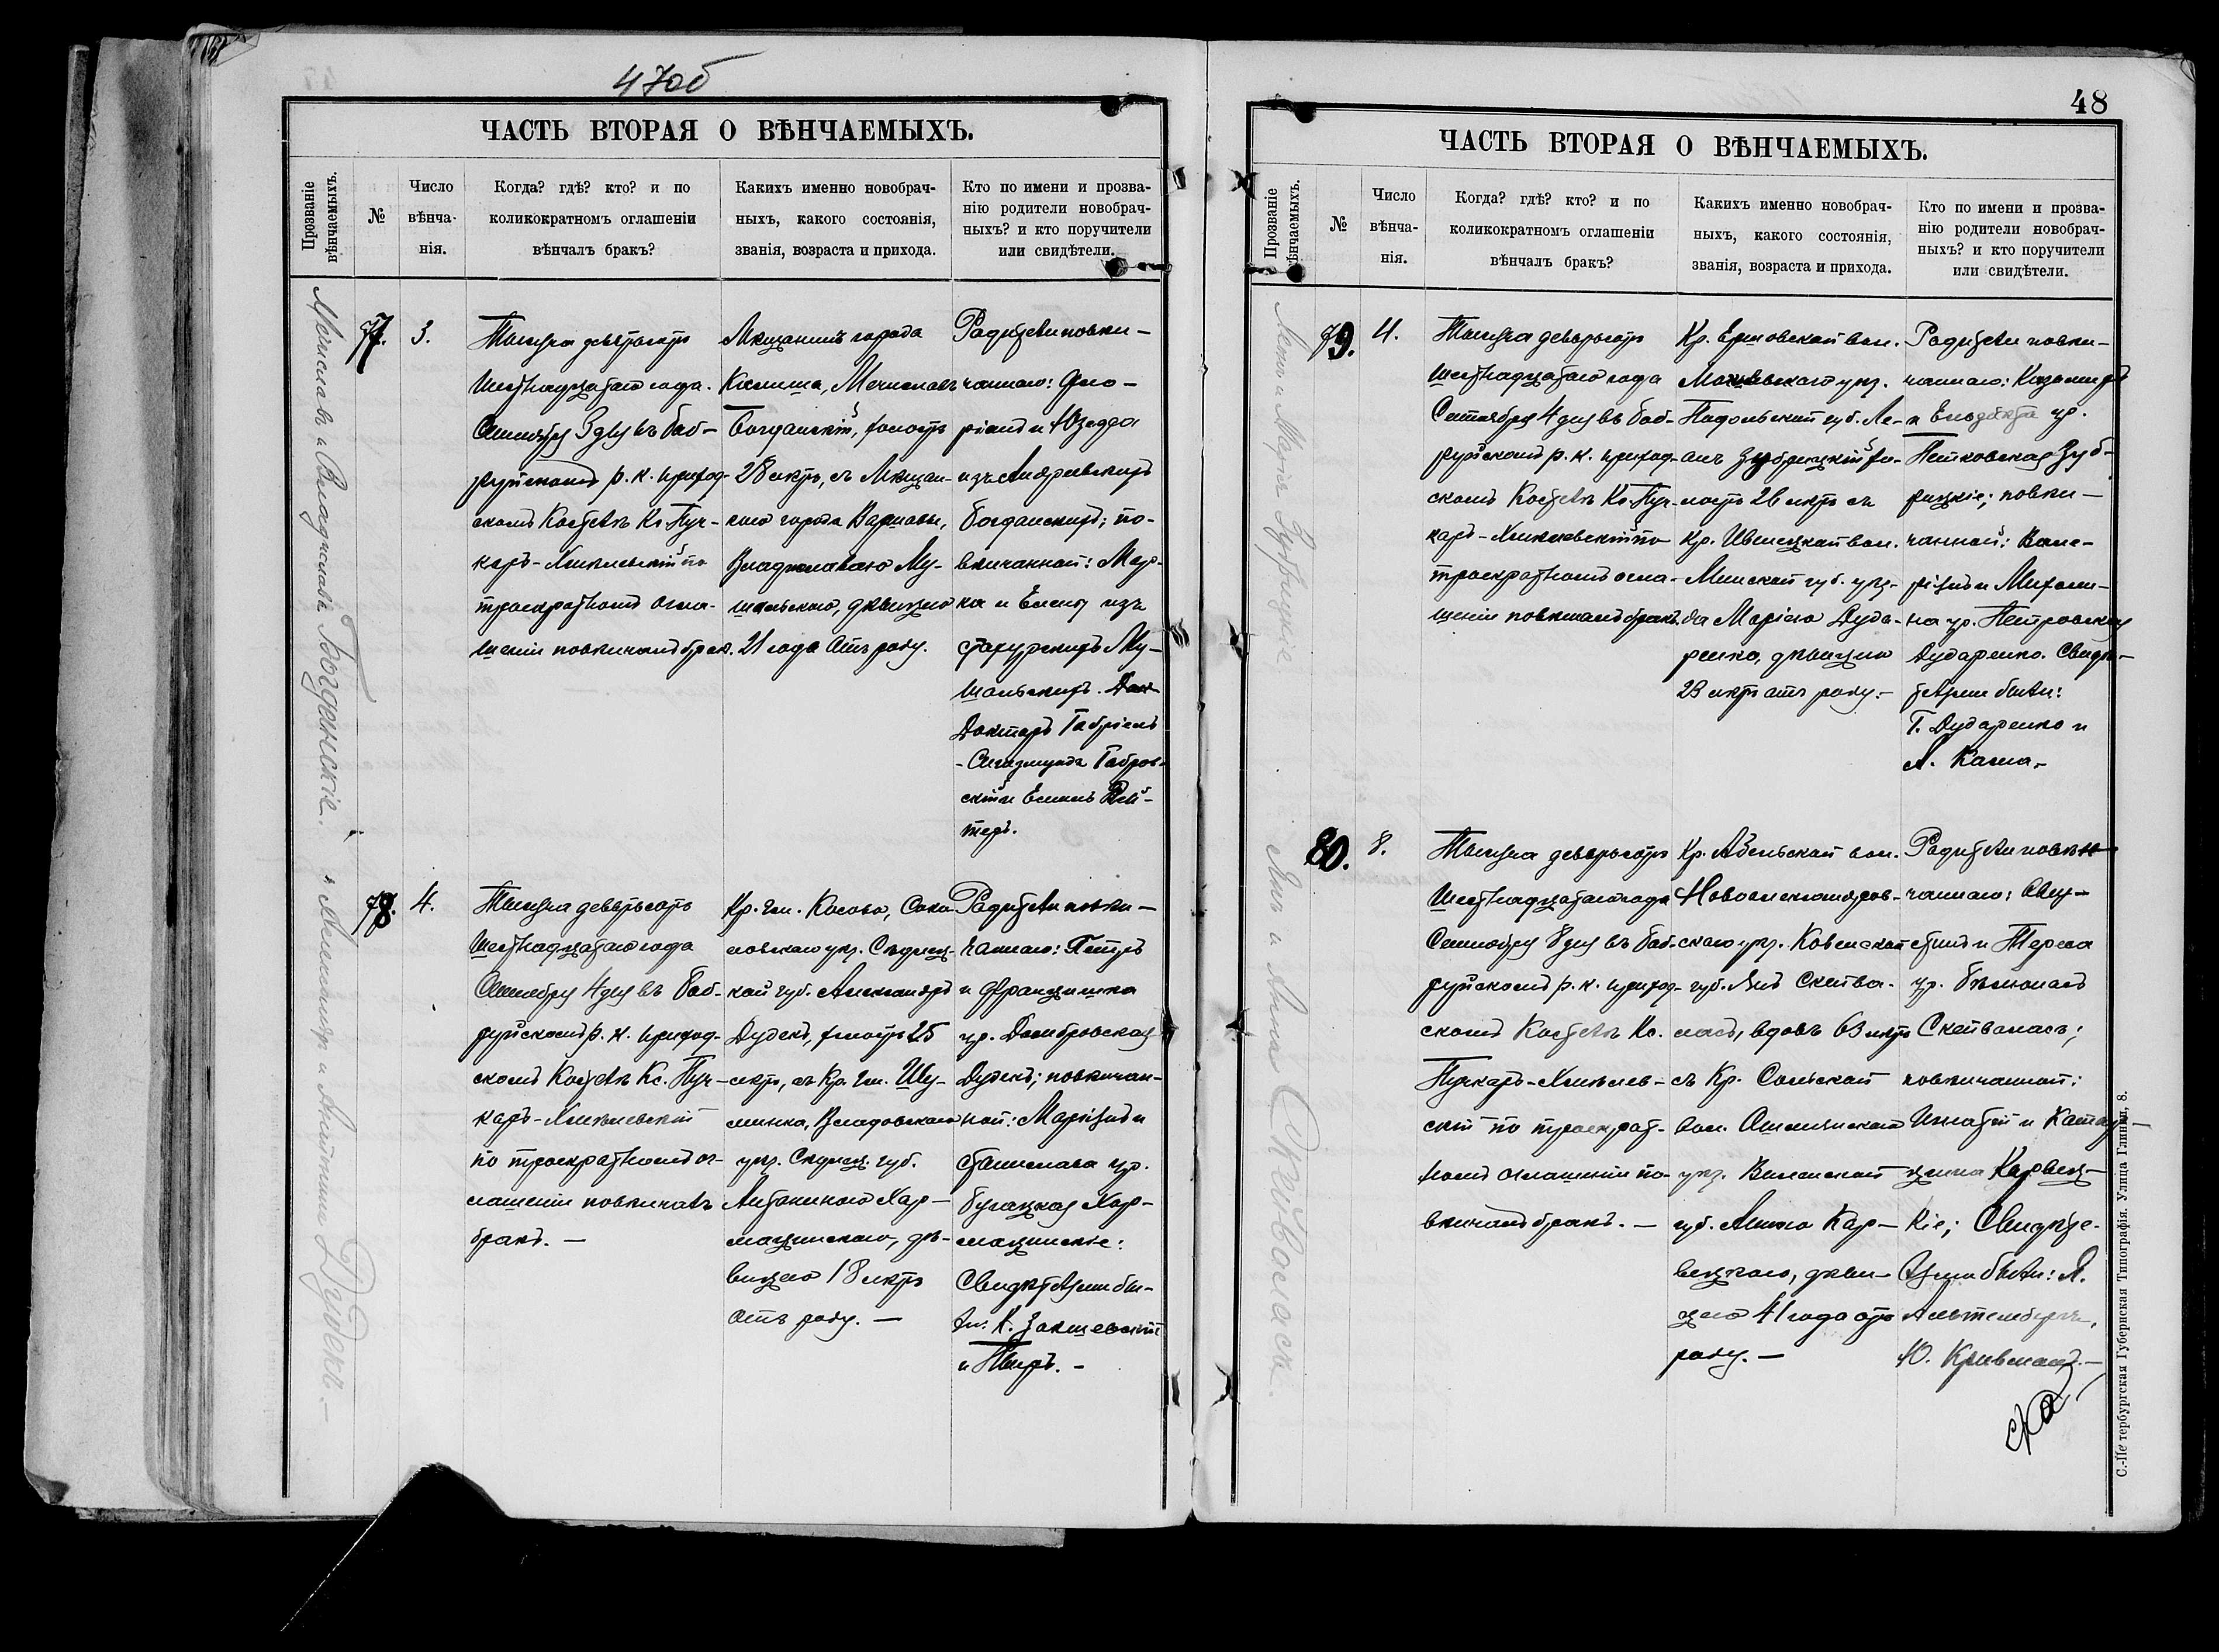 47об
ЧАСТЬ ВТОРАЯ О ВѢНЧАЕМЫХЪ.
Прозваніе вѣнчаемыхъ.
№
Число вѣнча- нія.
Когда? гдѣ? кто? и по коликократномъ оглашеніи вѣнчалъ бракъ?
Какихъ именно новобрач- ныхъ, какого состоянія, званія, возраста и прихода.
Кто по имени и прозва- нію родители новобрач- ныхъ? и кто поручители или свидѣтели.
Мечиславъ и Владислава Богданскіе.
77.
3.
Тысяча девятьсотъ
шестнадцатаго года
Сентября 3 дня въ Боб-
руйскомъ р. к. приход-
скомъ Костелѣ Кс. Пуч-
каръ-Хмѣлевскій по
троекратномъ огла-
шеніи повѣнчалъ брак.
Мѣщанинъ города
Калиша, Мечиславъ
Богданскій, холостъ
28 лѣтъ, съ Мѣщан-
кою города Варшавы,
Владиславою Му-
шальскою, дѣвицею
21 года отъ роду.
Родители повѣн-
чаннаго: Фло-
ріанъ и Юзефа
изъ Андреевскихъ
Богданскихъ; по-
вѣнчанной: Мар-
ка и Елены изъ
Му-
шальскихъ.
Докторъ Габріель
Габров-
скій и
теръ.
Александръ и Антонина Дудекъ.
78.
4.
Тысяча девятьсотъ
шестнадцатаго года
Сентября 4 дня въ Боб-
руйскомъ р. к. приход-
скомъ Костелѣ Кс. Пуч-
каръ-Хмѣлевскій
по троекратномъ ог-
лашеніи повѣнчалъ
бракъ. —
Кр. гм. Косовъ, Соко
ловскаго уѣз. Сѣдлец-
кой губ. Александръ
Дудекъ, холостъ 25
лѣтъ, съ Кр. гм. Шу-
минка, Влодовскаго
уѣз. Сѣдлец. губ.
Антониною Хар-
мацинскою, дѣ-
вицею 18 лѣтъ
отъ роду. —
Родители повѣн-
чаннаго: Петръ
и Францишка
ур. Домбровская
Дудекъ; повѣнчан-
ной: Марцинъ и
Станислава ур.
Хар-
мацинскіе:
Свидѣтелями бы-
ли: К. Закшевскій
и
48
ЧАСТЬ ВТОРАЯ О ВѢНЧАЕМЫХЪ.
Прозваніе вѣнчаемыхъ.
№
Число вѣнча- нія.
Когда? гдѣ? кто? и по коликократномъ оглашеніи вѣнчалъ бракъ?
Какихъ именно новобрач- ныхъ, какого состоянія, званія, возраста и прихода.
Кто по имени и прозва- нію родители новобрач- ныхъ? и кто поручители или свидѣтели.
Леонъ и Марія Зубрицкіе
79.
4.
Тысяча девятьсотъ
шестнадцатаго года
Сентября 4 дня въ Боб-
руйскомъ р. к. приход-
скомъ Костелѣ Кс. Пуч-
каръ-Хмѣлевскій по
троекратномъ огла-
шеніи повѣнчалъ бракъ.
Кр. вол.
уѣз.
Подольской губ. Ле-
онъ Зубрицкій хо-
лостъ 26 лѣтъ съ
Кр. Ивенецкой вол.
Минской губ. уѣз-
да Маріею Дуда-
ренко, дѣвицею
23 лѣтъ отъ роду.-
Родители повѣн-
чаннаго: Казимиръ
и ур.
Зуб-
рицкіе; повѣн-
чанной: Вале-
ріанъ и Михали-
на ур. Петровская
Дударенко. Свидѣ-
телями были:
Г. Дударенко и
А.
Янъ и Анна Скейволасы.
80.
8.
Тысяча девятьсотъ
шестнадцатаго года
Сентября 8 дня въ Боб-
руйскомъ р. к. приход-
скомъ Костелѣ Кс.
Пучкаръ-Хмѣлев-
скій по троекрат-
номъ оглашеніи по-
вѣнчалъ бракъ. —
Кр. Абельской вол.
Новоалександров-
скаго уѣз. Ковенской
губ. Янъ Скейва-
ласъ, вдовъ 63 лѣтъ
съ Кр. Сольской
вол. Ошмянскаго
уѣз. Виленской
губ. Анною Кар-
вецкою, дѣви-
цею 41 года отъ
роду. —
Родители повѣн
чаннаго: Авгу-
стинъ и Тереса
ур.
Скейваласъ;
повѣнчанной:
Игнатій иКата-
жина Карвец-
кіе; Свидѣте-
лями были: Я.
Альтенбергъ,
Ю.
С.-Петербургская Губернская Типографія. Улица Глинки, 8.